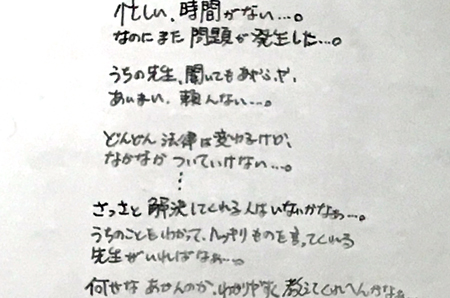 忙しい、時間がない…。
なのにまた問題が発生した…。
うちの先生、聞いてもあやふや、
あいまい、頼んない…。
どんどん法律は変わるけど、
なかなかついていけない…。
⋮
さっさと解決してくれる人はいないかなぁ…。
うちのこともわかって、ハッキリものを言ってくれる
先生がいればなぁ…。
何せなあかんのか、わかりやすく教えてくれへんかなぁ